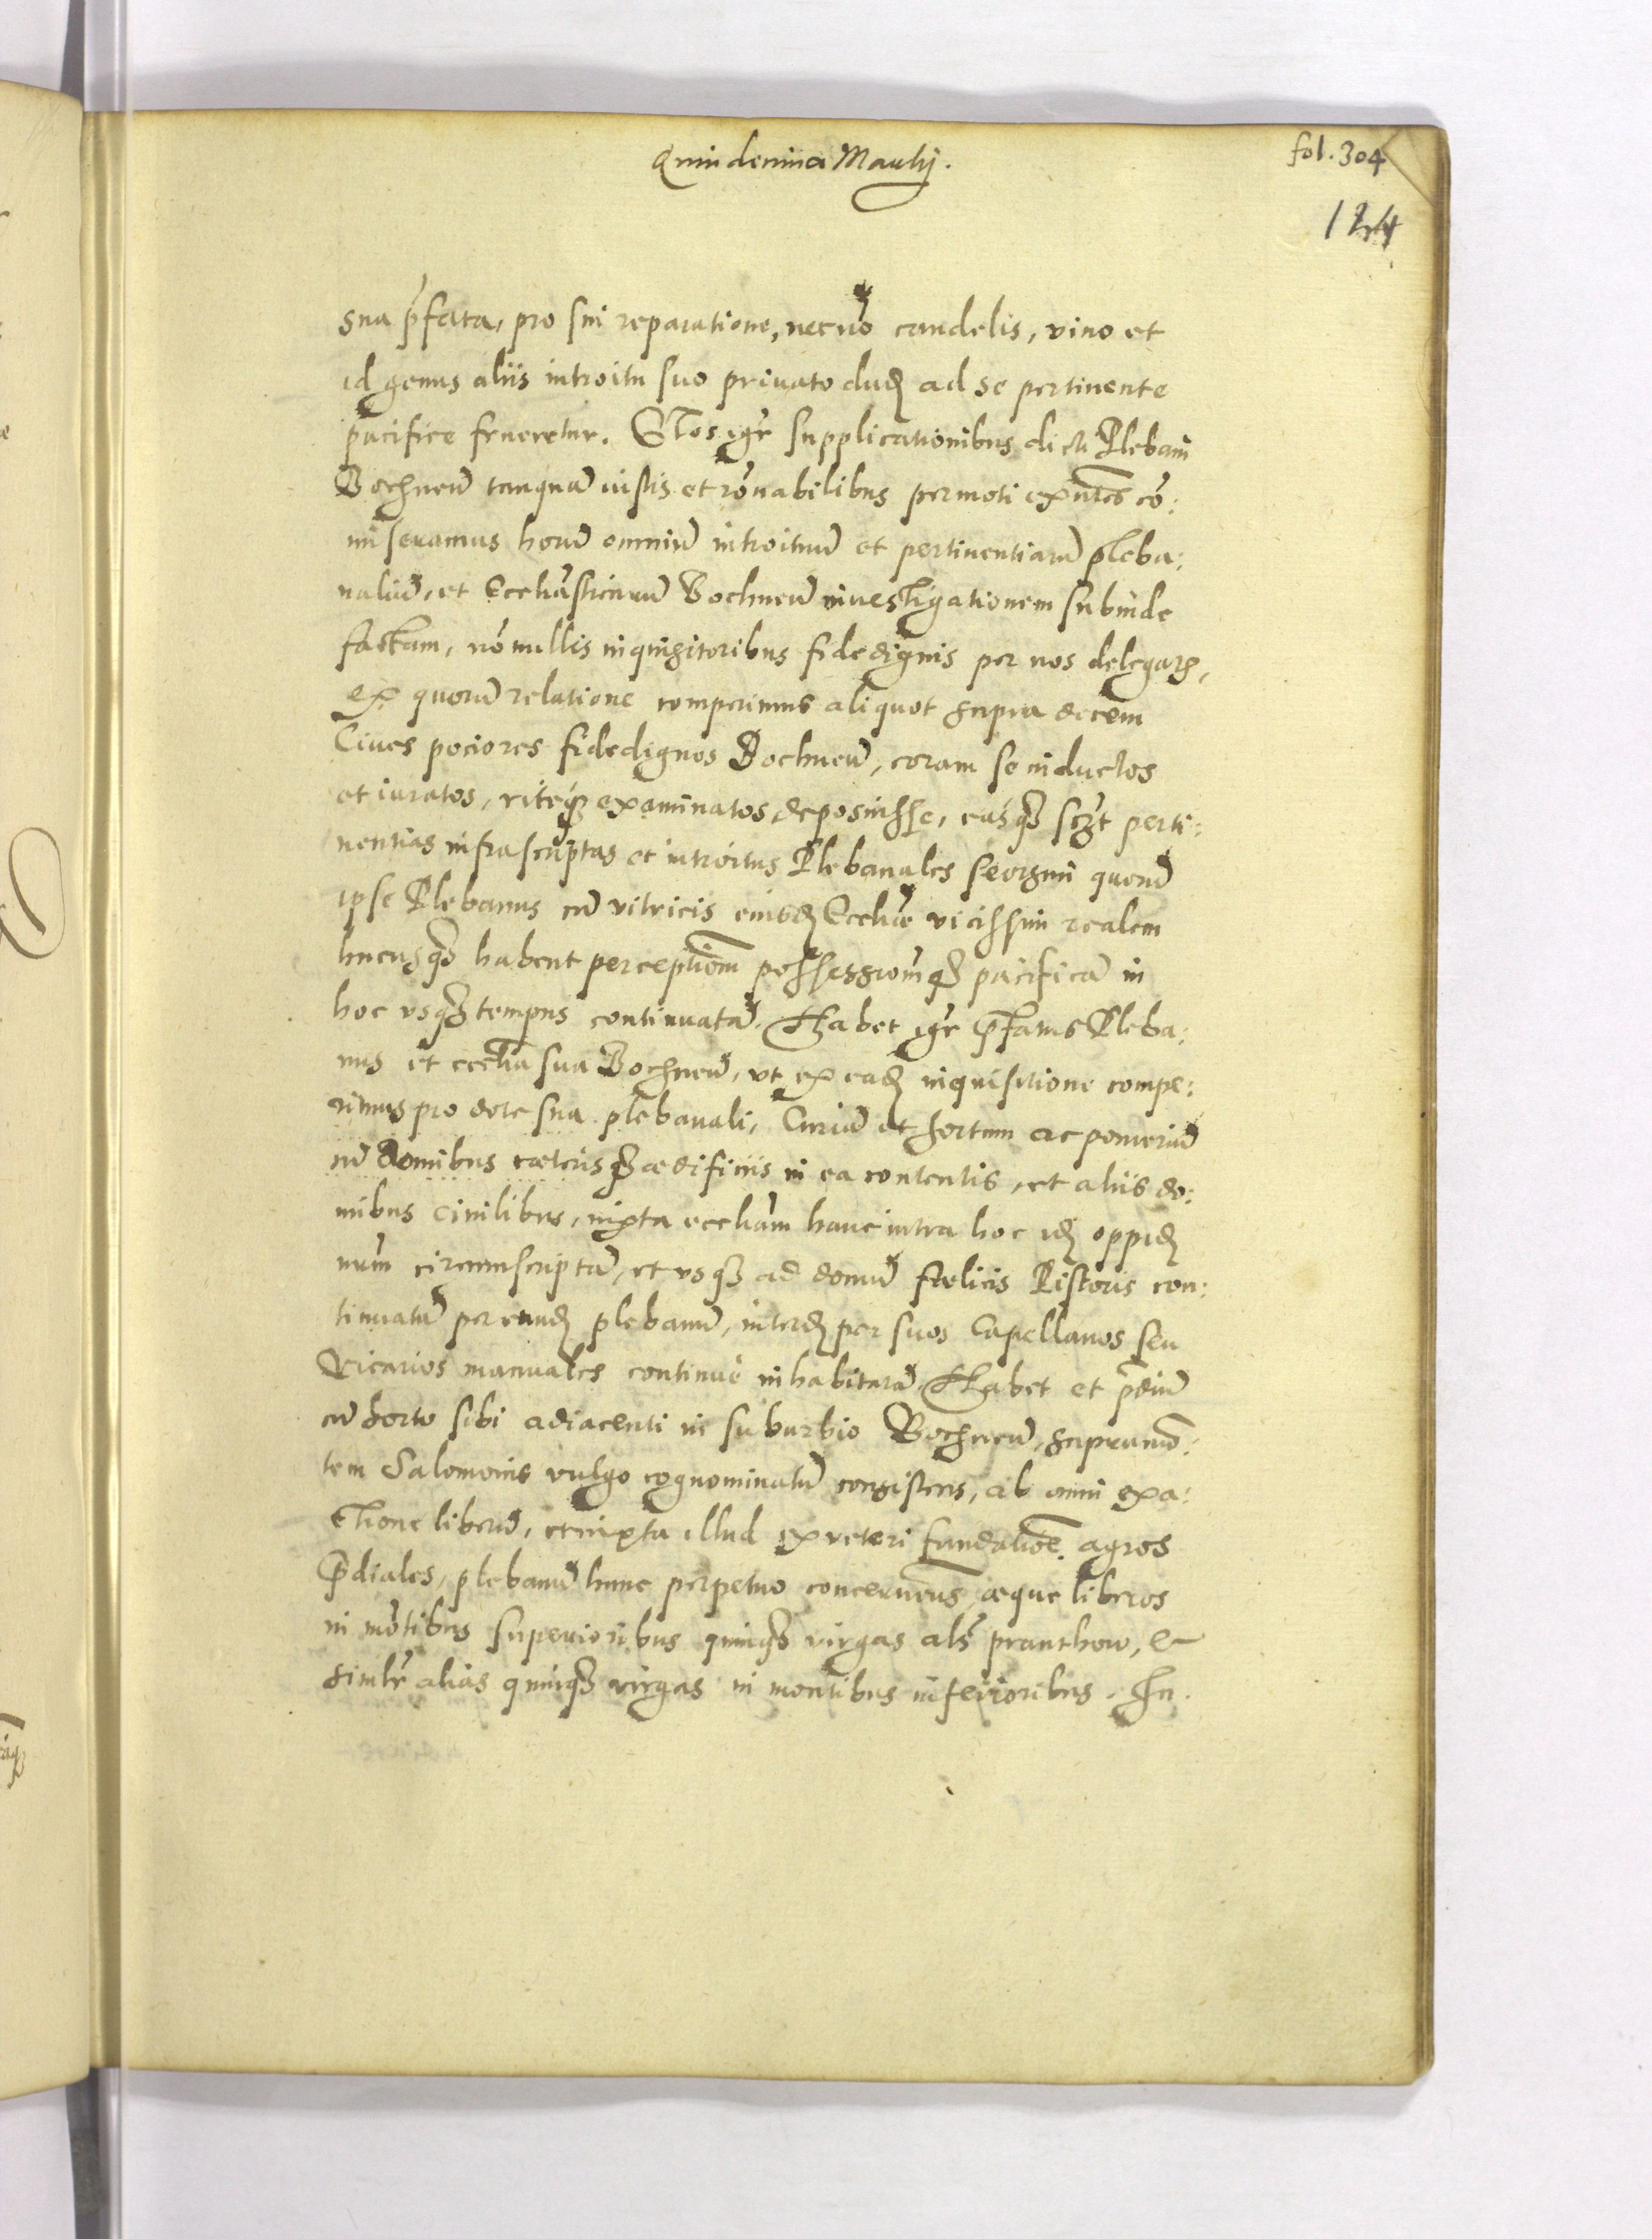 Quindenna Martij.
fol. 304
124
sua p̄fata, pro sui reparatione, necnō candelis, vino et
id genus aliis introitu suo priuato dudꝫ ad se pertinente
pacifice frueretur. Nos igr̄ supplicationibus dicti Plebani
Bochneñ tanquā iustis et rōnabilibus permoti cō:
miseramus horū omniū introituū et pertinentiarū pleba:
naliū, et Eccliāsticarū Bochneñ inuestigationem subinde
factam, nōnullis inquisitoribus fidedignis per nos delegatis,
ex quorū relatione comperimus aliquot supra decem
Ciues pociores fidedignos Bochneñ, coram se inductos
et iuratos, riteqꝫ examinatos, deposuisse, easqꝫ perti:
nentias infrascriptas et introitus Plebanales seorsim quorū
ipse Plebanus cū vitricis eiusdꝫ Eccliæ vicissim realem
hucusqꝫ habent perceptionem possessionēqꝫ pacificā in
hoc vsqꝫ tempus continuatā. Habet igr̄ p̄fatus Pleba:
nus et eccliā sua Bochneñ, vt ex eadꝫ inquisitione compe:
rimus pro dote sua plebanali, Curiā et hortum ac pomeriū
cū domibus cæterisqꝫ ædificiis in ea contentis, et aliis do:
mibus ciuilibus, iuxta eccliām hanc intra hoc idꝫ oppidꝫ
circumscriptā, et vsqꝫ ad domū fælicis Pistoris con:
tinuatā per eundꝫ plebanū, interdꝫ per suos Capellanos seu
Vicarios manuales continuè inhabitatā. Habet et p̄diū
cū horto sibi adiacenti in suburbio Bochneñ, supra mō:
tem Salomonis vulgo cognominatū consistens, ab omni exa:
ctione liberū, et iuxta illud ex veteri fundatiōe agros
p̄diales, plebanū hunc perpetuo concernens, æque liberos
in mōtibus superioribus quinqꝫ virgas als̄ pranthow, et
similr̄ alias quinqꝫ virgas in montibus inferioribus. In